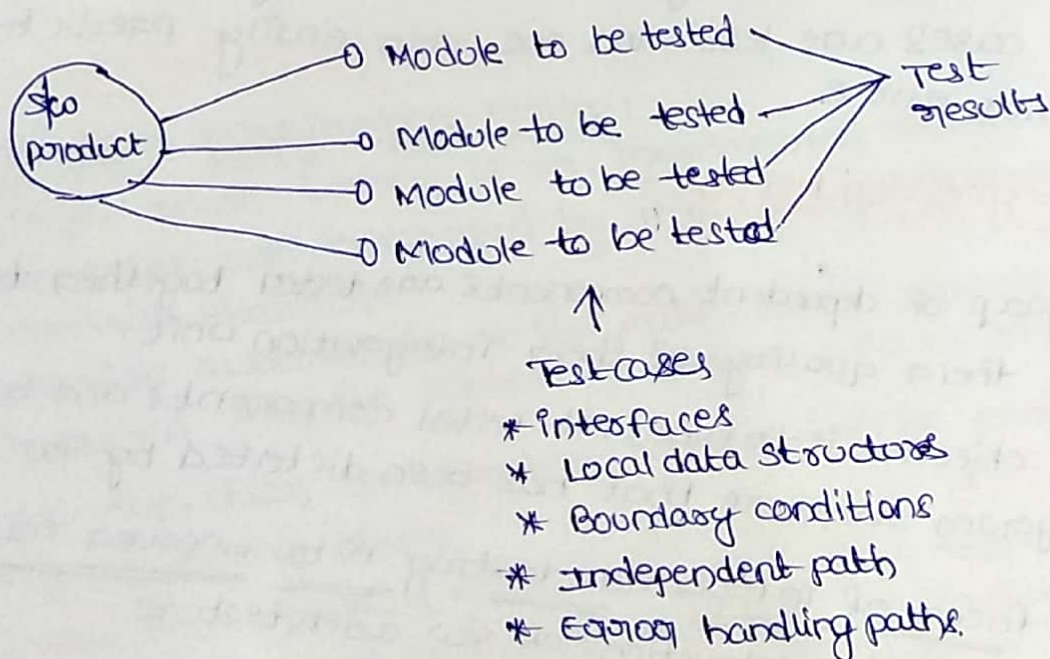 Module to be tested
S/w
product
Module to be tested
Module to be tested
Module to be tested
Test
results
Testcases
* interfaces
* Local data structors
* Boundary conditions
* Independent path
* Error handling paths.